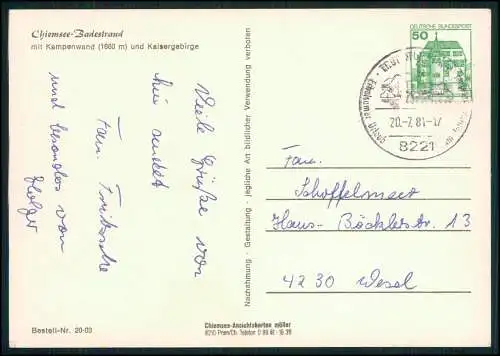 Chiemsee-Badestrand
mit Kampenwand (1660 m) und Kaisergebirge
Viele Grüße vom
sendet
Fam. Fritzsche
und besonders von
Holger
Bestell-Nr. 20-03
Nachahmung - Gestaltung - jegliche Art bildlicher Verwendung verboten
Chiemsee-Ansichtskarten müller
8210 Prien/Ch. Telefon
DEUTSCHE BUNDESPOST
50
20.-7.81-17
8221
Fam.
Schoffelmeer
Hans-Böckler str. 13
4230 Wesel